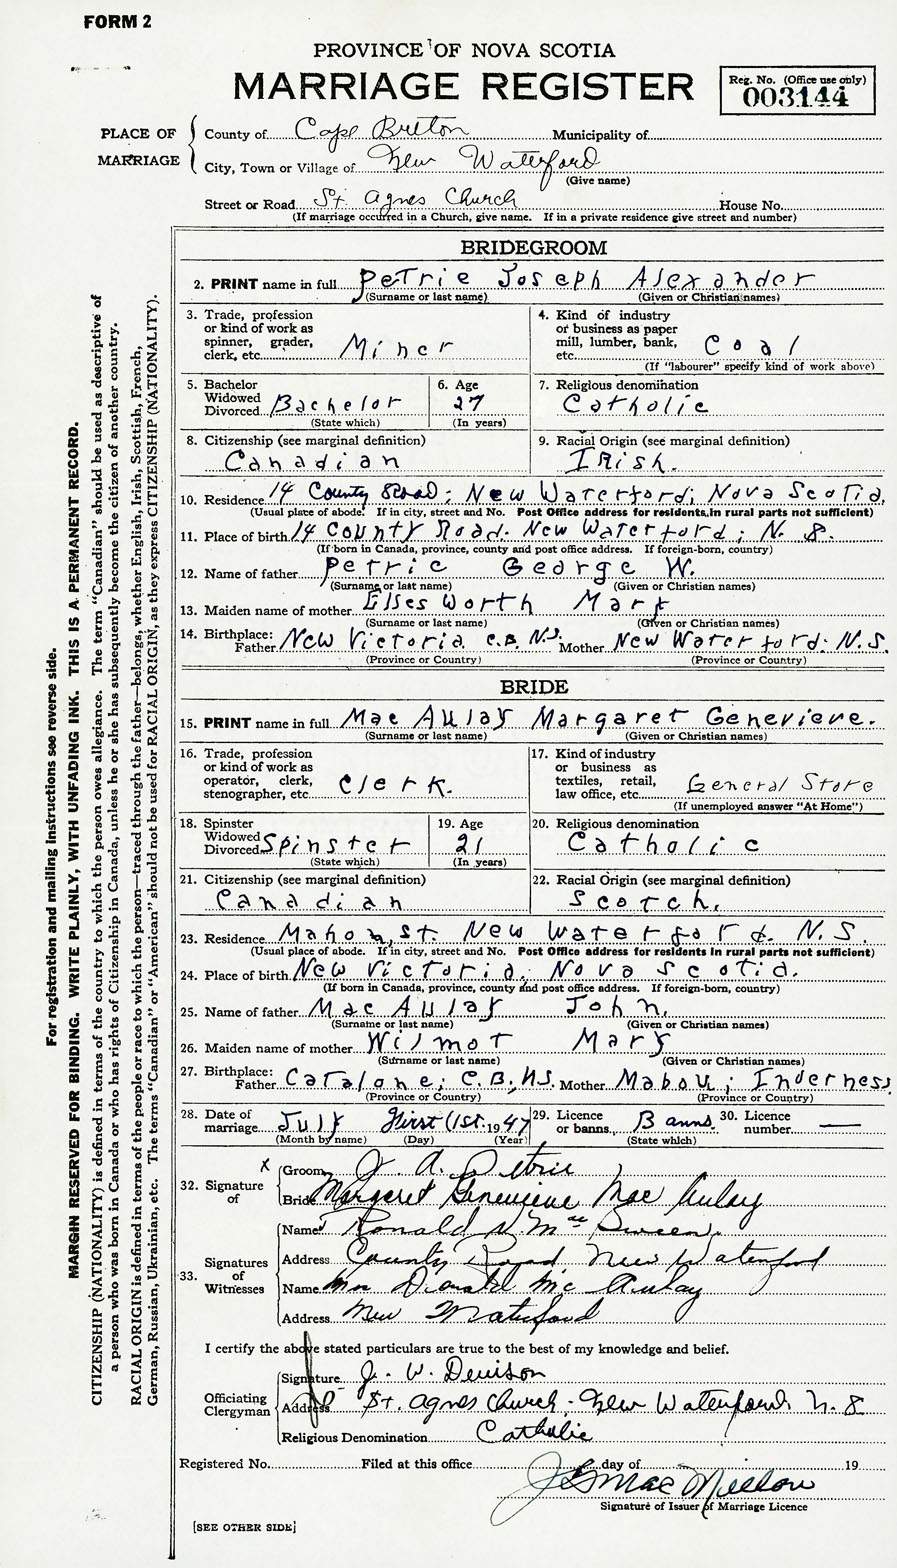 FORM 2
PROVINCE OF NOVA SCOTIA
MARRIAGE REGISTER
Reg. No. (Office use only)
003144
PLACE OF MARRIAGE
County of Cape Breton Municipality of
City, Town or Village of New Waterford
(Give name)
Street or Road St. Agnes Church House No.
(If marriage occurred in a Church, give name. If in a private residence give street and number)
BRIDEGROOM
2. PRINT name in full Petrie Joseph Alexander
(Surname or last name) (Given or Christian names)
3. Trade, profession or kind of work as spinner, grader, clerk, etc. Miner
4. Kind of industry or business as paper mill, lumber, bank, etc. Coal
(If "labourer" specify kind of work above)
5. Bachelor Widowed Divorced Bachelor
(State which)
6. Age 27
(In years)
7. Religious denomination
Catholic
8. Citizenship (see marginal definition)
Canadian
9. Racial Origin (see marginal definition)
IRish.
10. Residence 14 County Road; New Waterford; Nova Scotia,
(Usual place of abode. If in city, street and No. Post Office address for residents in rural parts not sufficient)
11. Place of birth 14 County Road. New Waterford; N. S.
(If born in Canada, province, county and post office address. If foreign-born, country)
12. Name of father Petrie George W.
(Surname or last name) (Given or Christian names)
13. Maiden name of mother Ellsesworth Mary
(Surname or last name) (Given or Christian names)
14. Birthplace: Father New Victoria C.B. N.S. Mother New Waterford: N.S.
(Province or Country) (Province or Country)
BRIDE
15. PRINT name in full Mac Aulay Margaret Genevieve.
(Surname or last name) (Given or Christian names)
16. Trade, profession or kind of work as operator, clerk, stenographer, etc. Clerk.
17. Kind of industry or business as textiles, retail, law office, etc. General Store
(If unemployed answer "At Home")
18. Spinster Widowed Divorced Spinster
(State which)
19. Age 21
(In years)
20. Religious denomination
Catholic
21. Citizenship (see marginal definition)
Canadian
22. Racial Origin (see marginal definition)
Scotch,
23. Residence Mahon, St. New Waterford. N. S.
(Usual place of abode. If in city, street and No. Post Office address for residents in rural parts not sufficient)
24. Place of birth New Victoria, Nova Scotia.
(If born in Canada, province, county and post office address. If foreign-born, country)
25. Name of father Mac Aulay John,
(Surname or last name) (Given or Christian names)
26. Maiden name of mother Wilmot Mary
(Surname or last name) (Given or Christian names)
27. Birthplace: Father Catalone; C.B; N.S. Mother Mabou; Inderness
(Province or Country) (Province or Country)
28. Date of marriage July First (1st. 1947
(Month by name) (Day) (Year)
29. Licence or banns Banns.
(State which)
30. Licence number —
32. Signature of
x Groom J. A. Petrie
Bride Margaret Genevieve Mac Aulay
33. Signatures of Witnesses
Name Ronald Mac
Address County Road New Waterford
Name Mrs Donald Mc Aulay
Address New Waterford
I certify the above stated particulars are true to the best of my knowledge and belief.
Officiating Clergyman
Signature J. W. Denison
Address St. Agnes Church - New Waterford N. S
Religious Denomination Catholic
Registered No. Filed at this office day of 19
Signature of Issuer of Marriage Licence
[SEE OTHER SIDE]
For registration and mailing instructions see reverse side.
MARGIN RESERVED FOR BINDING. WRITE PLAINLY, WITH UNFADING INK. THIS IS A PERMANENT RECORD.
CITIZENSHIP (NATIONALITY) is defined in terms of the country to which the person owes allegiance. The term "Canadian" should be used as descriptive of
a person who was born in Canada or who has rights of Citizenship in Canada, unless he or she has subsequently become the citizen of another country.
RACIAL ORIGIN is defined in terms of the people or race to which the person—traced through the father—belongs, whether English, Irish, Scottish, French,
German, Russian, Ukrainian, etc. The terms "Canadian" or "American" should not be used for RACIAL ORIGIN, as they express CITIZENSHIP (NATIONALITY).